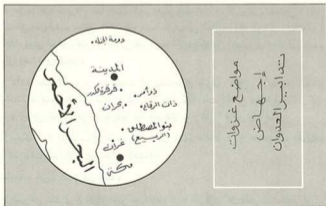 مواضع غزوات
إجهاض
تدابير العدوان
دومة الجندل
المدينة
قرقرة الكدر
ذو أمر
بحران
ذات الرقاع
بنو المصطلق
(المريسيع)
غران
مكة
البحر الأحمر